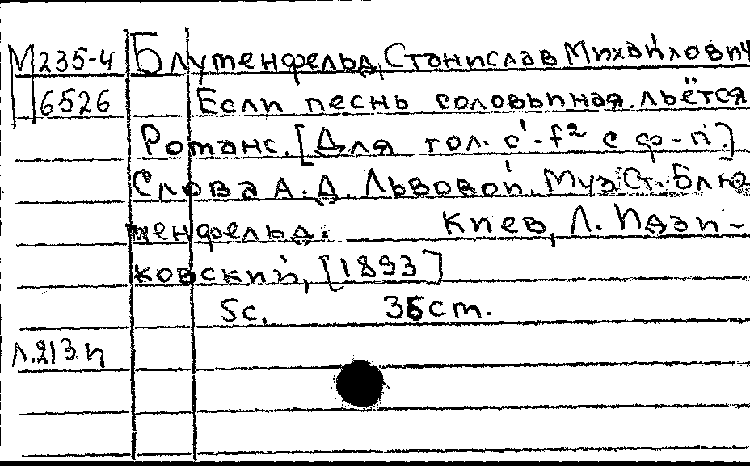 М 235-4 Блуменфельд, Станислав Михайлович
6526 Если песнь соловьиная льётся
Романс. [Для гол. c¹-f² с ф-п.]
Слова А. Д. Львовой. Муз. Ст. Блю
менфельд. Киев, Л. Идзи-
ковский, [1893]
5с. 35cm.
Л.213.п